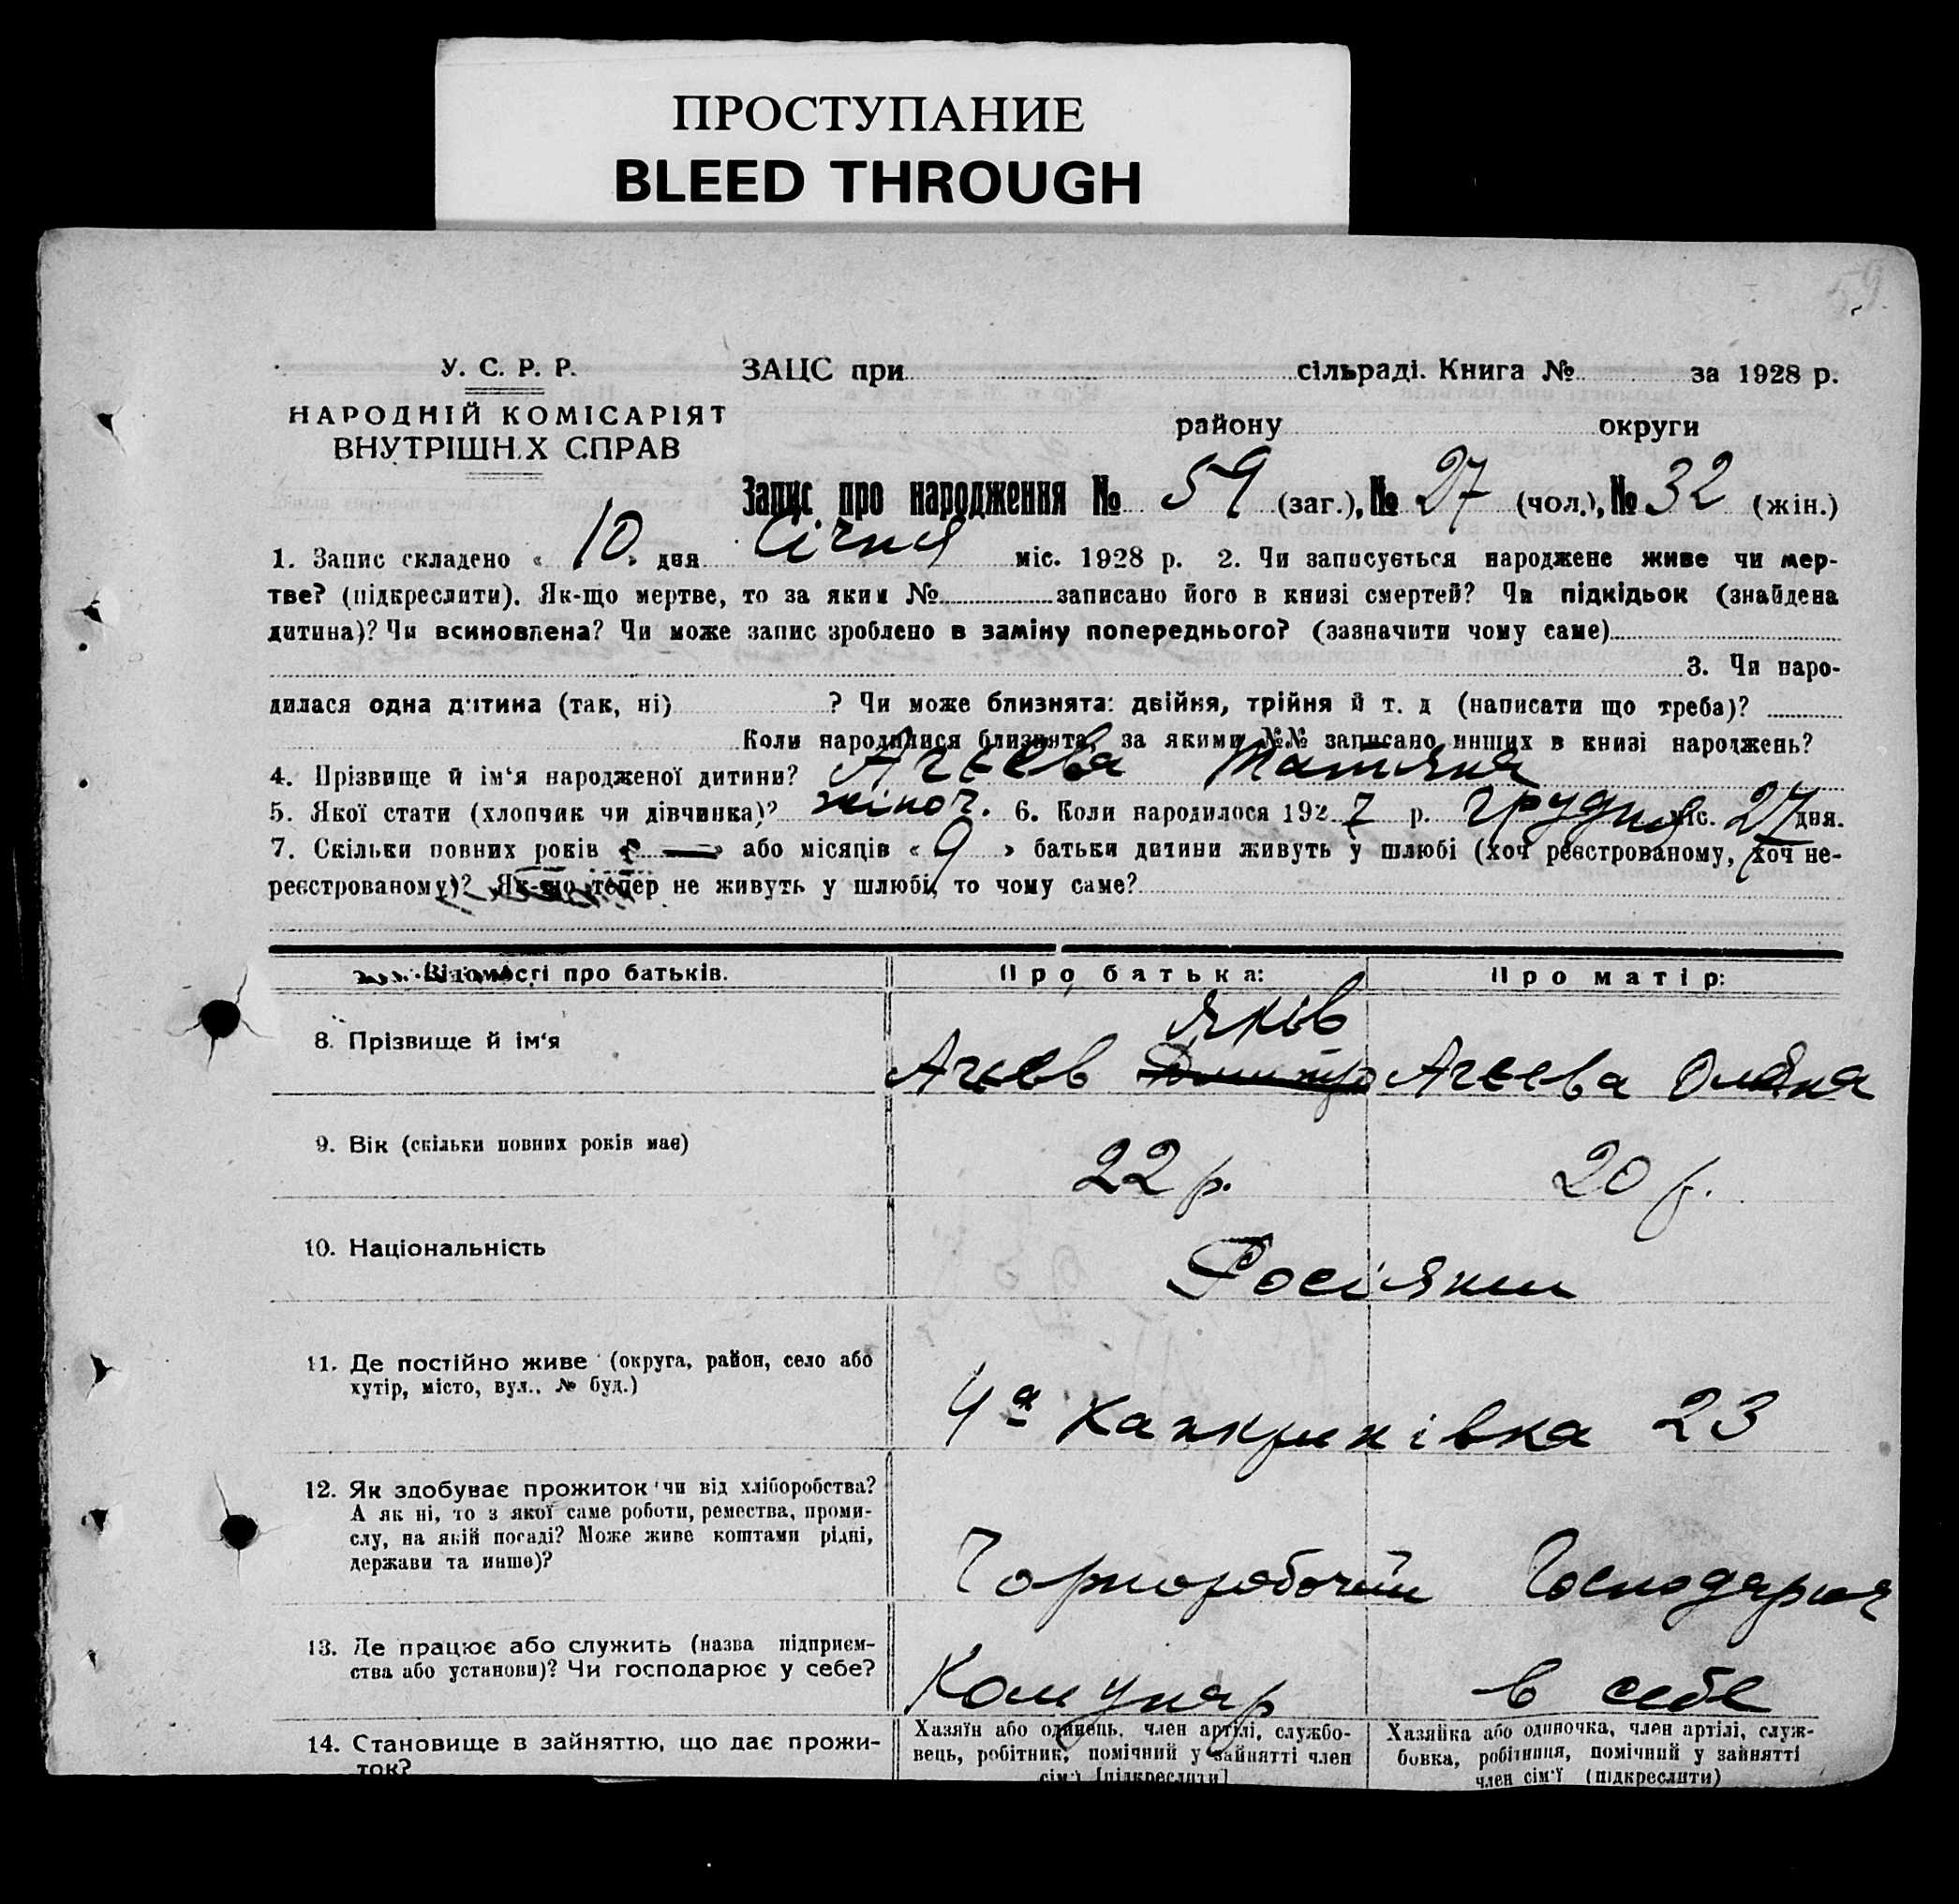 ПРОСТУПАНИЕ
BLEED THROUGH
59.
У. С. Р. Р.
НАРОДНІЙ КОМІСАРІЯТ
ВНУТРІШН.Х СПРАВ
ЗАЦС при сільраді. Книга № за 1928 р.
району округи
Запис про народження № 59 (заг.), № 27 (чол.), № 32 (жін.)
1. Запис складено « 10 » дня Січня міс. 1928 р. 2. Чи записується народжене живе чи мер-
тве? (підкреслити). Як-що мертве, то за яким № записано його в книзі смертей? Чи підкідьок (знайдена
дитина)? Чи всиновлена? Чи може запис зроблено в заміну попереднього? (зазначити чому саме)
3. Чи наро-
дилася одна дитина (так, ні) ? Чи може близнята: двійня, трійня й т. д (написати що треба)?
Коли народилися близнята, за якими №№ записано инших в книзі народжень?
4. Прізвище й ім'я народженої дитини? Агєєва Татяна
5. Якої стати (хлопчик чи дівчинка)? жіноч. 6. Коли народилося 1927 р. Грудня міс. 27 дня.
7. Скільки повних років « — » або місяців « 9 » батьки дитини живуть у шлюбі (хоч реєстрованому, хоч не-
реєстрованому)? Як-що тепер не живуть у шлюбі, то чому саме?
Відомості про батьків. Про батька: Про матір:
Яків
8. Прізвище й ім'я Агєєв Дмитро Агєєва Оляна
9. Вік (скільки повних років має) 22 р. 20 р.
10. Національність Росіяни
11. Де постійно живе (округа, район, село або
хутір, місто, вул., № буд.)
4а 23
12. Як здобуває прожиток чи від хліборобства?
А як ні, то з якої саме роботи, ремества, проми-
слу, на якій посаді? Може живе коштами рідні,
держави та инше)?
Чорноробочий Господарня
13. Де працює або служить (назва підприєм-
ства або установи)? Чи господарює у себе?
Комунар в себе
14. Становище в зайняттю, що дає прожи-
ток?
Хазяїн або одинець, член артілі, службо-
вець, робітник, помічний у зайнятті член
сім'ї [підкреслити]
Хазяйка або одиночка, член артілі, служ-
бовка, робітниця, помічний у зайнятті
член сім'ї (підкреслити)